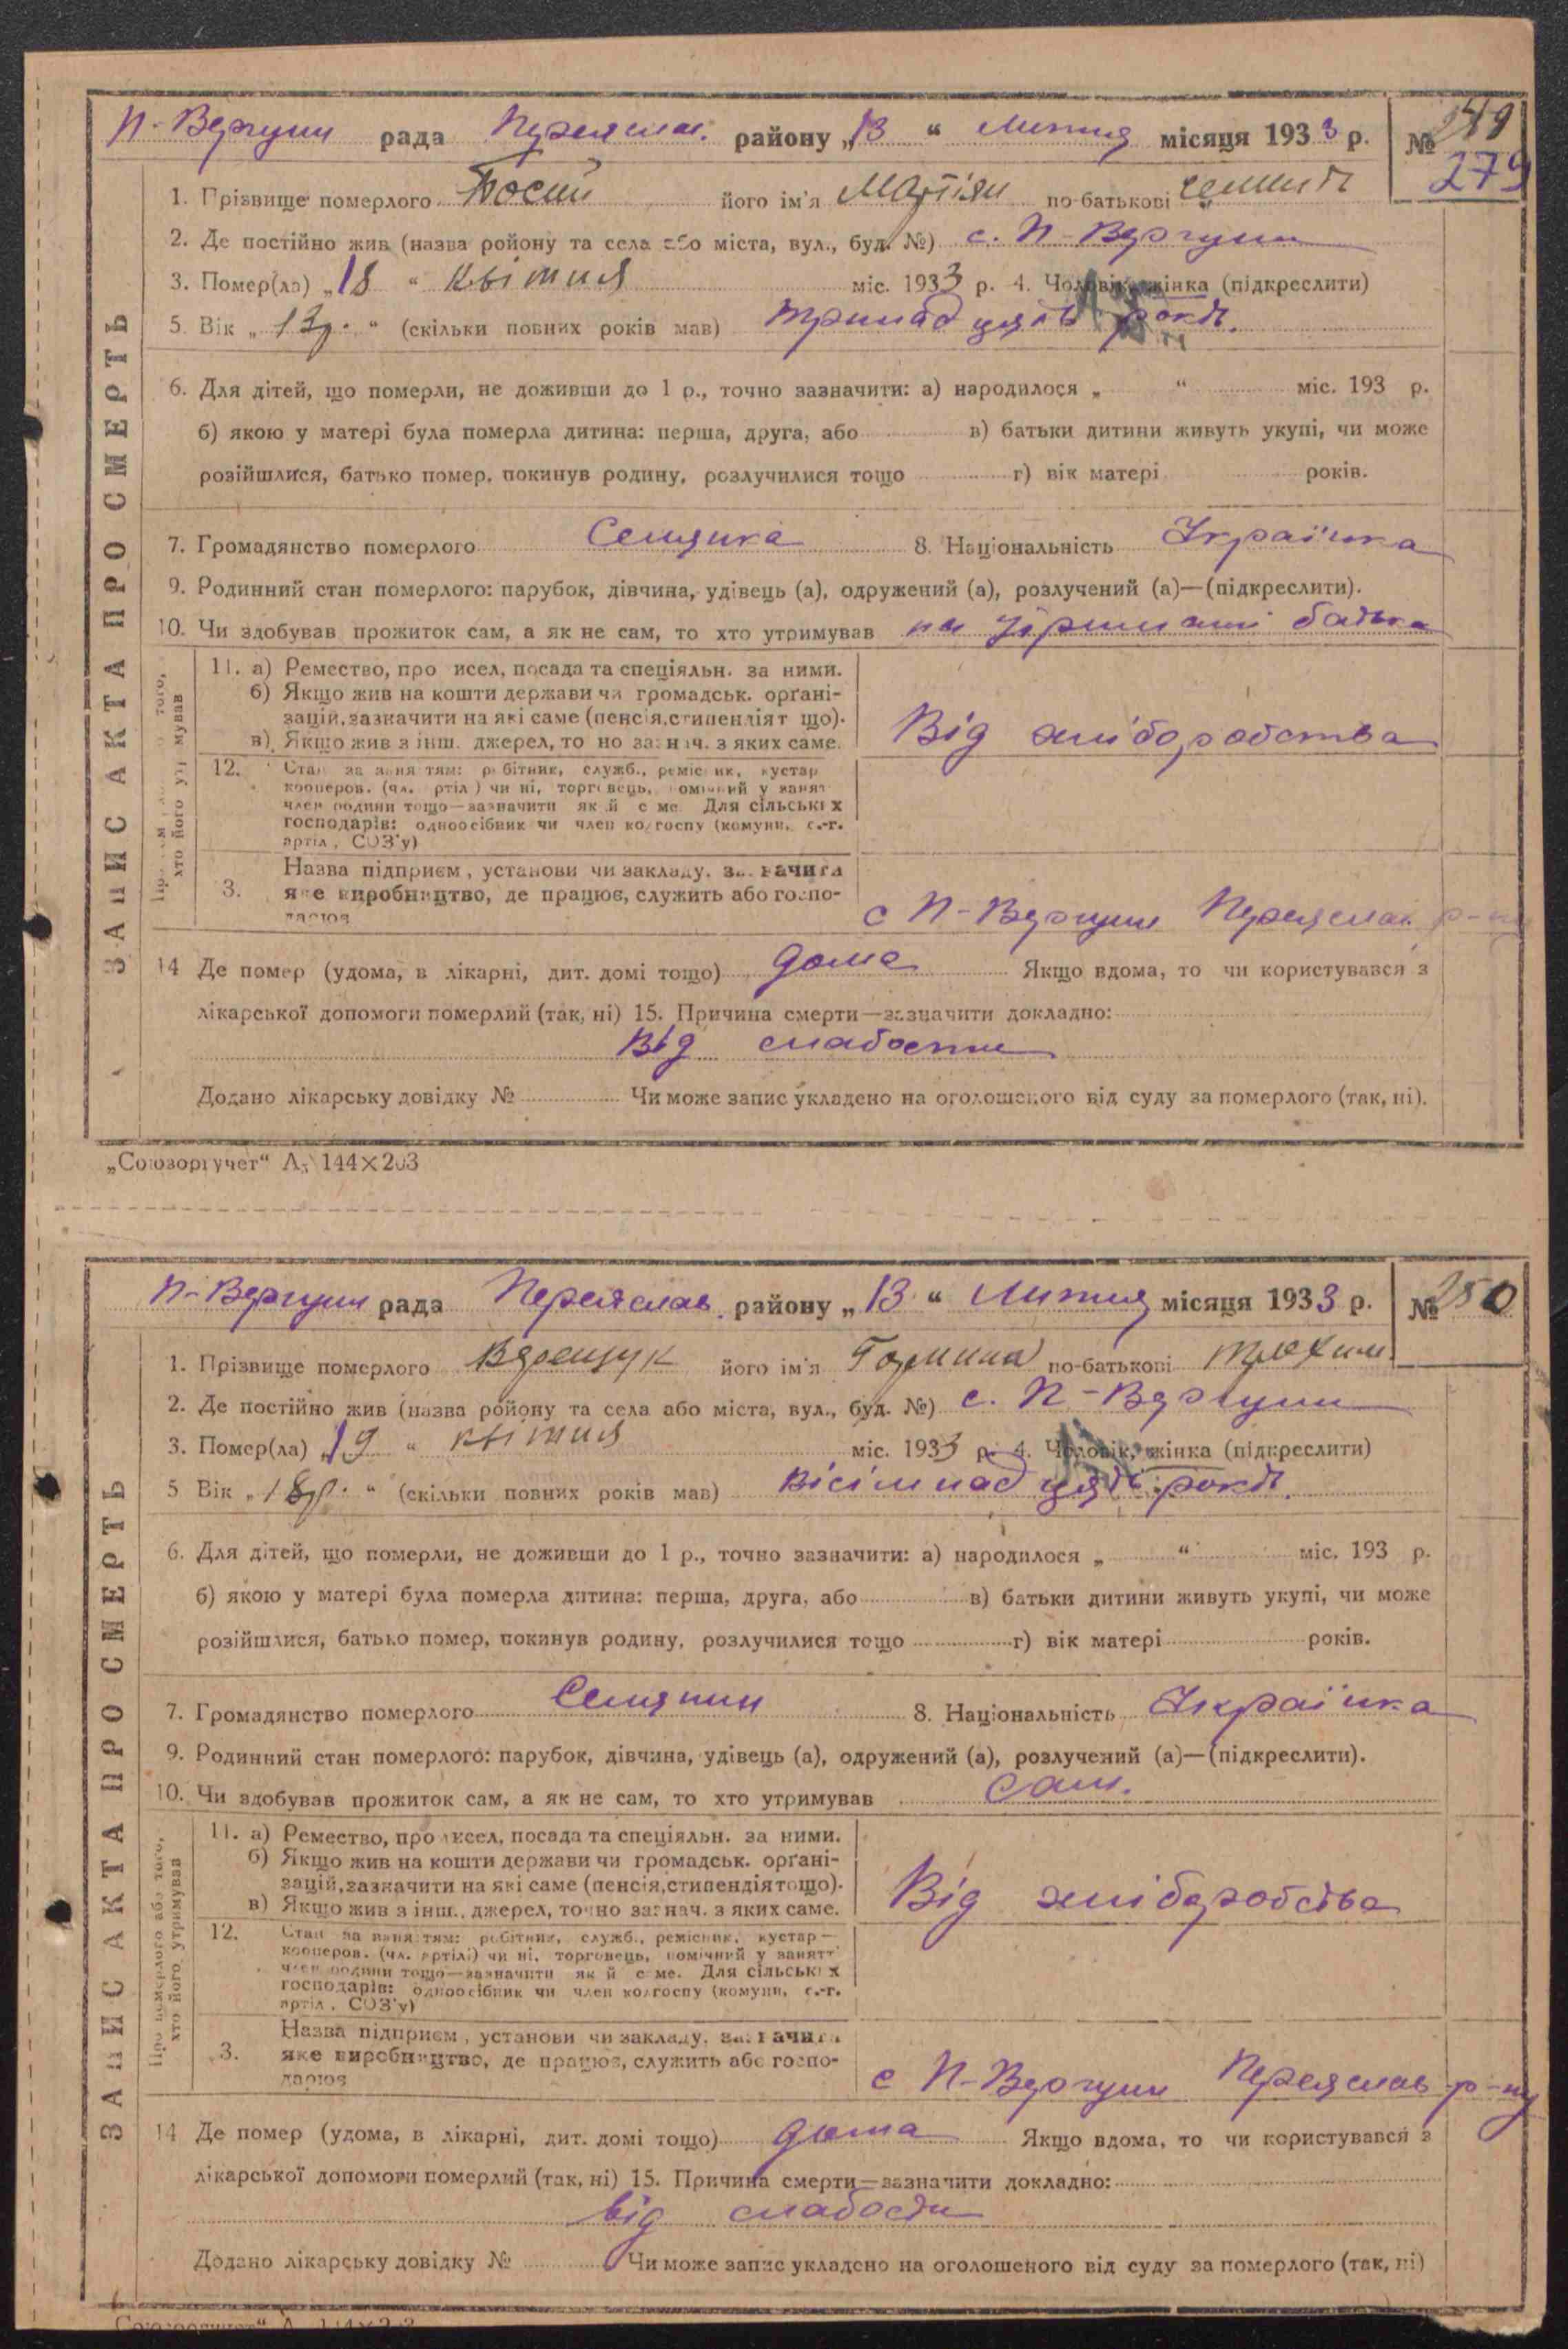 П-Вергуни рада Переяслав. району „13“ Липня місяця 1933 р. № 249
279
1. Прізвище померлого Босий його ім'я Мартіян по-батькові
2. Де постійно жив (назва ройону та села або міста, вул., буд. №) с. П-Вергуни
3. Помер(ла) „18“ квітня міс. 1933 р. 4. Чоловік, жінка (підкреслити)
5. Вік „13р.“ (скільки повних років мав) тринадцять років.
6. Для дітей, що померли, не доживши до 1 р., точно зазначити: а) народилося „ “ міс. 193 р.
б) якою у матері була померла дитина: перша, друга, або в) батьки дитини живуть укупі, чи може
розійшлися, батько помер, покинув родину, розлучилися тощо г) вік матері років.
7. Громадянство померлого Селянка 8. Національність Українка
9. Родинний стан померлого: парубок, дівчина, удівець (а), одружений (а), розлучений (а)—(підкреслити).
10. Чи здобував прожиток сам, а як не сам, то хто утримував на утриманні батька
11. а) Ремество, про исел, посада та спеціяльн. за ними.
б) Якщо жив на кошти держави чи громадськ. орґані-
зацій, зазначити на які саме (пенсія, стипендія т що).
в) Якщо жив з інш. джерел, то но зазнач. з яких саме.
Від хліборобства
12. Стан за заняттям: робітник, служб., ремісник, кустар
кооперов. (чл. ртіл) чи ні, торговець, помічний у занят
член родини тощо—зазначити як й с ме. Для сільських
господарів: одноосібник чи член колгоспу (комуни, с.-г.
артіл, СОЗ'у)
3. Назва підприєм, установи чи закладу, зазначити
яке виробництво, де працює, служить або госпо-
дарює
с П-Вергуни Переяслав р-ну
14 Де помер (удома, в лікарні, дит. домі тощо) дома Якщо вдома, то чи користувався з
лікарської допомоги померлий (так, ні) 15. Причина смерти—зазначити докладно:
Від слабости
Додано лікарську довідку № Чи може запис укладено на оголошеного від суду за померлого (так, ні).
ЗАПИС АКТА ПРО СМЕРТЬ
„Союзоргучет“ А₅ 144×203
П-Вергуни рада Переяслав. району „13“ Липня місяця 1933 р. № 250
1. Прізвище померлого його ім'я по-батькові Трохим
2. Де постійно жив (назва ройону та села або міста, вул., буд. №) с. П-Вергуни
3. Помер(ла) „19“ квітня міс. 1933 р. 4. Чоловік, жінка (підкреслити)
5 Вік „18р.“ (скільки повних років мав) вісімнадцять років.
6. Для дітей, що померли, не доживши до 1 р., точно зазначити: а) народилося „ “ міс. 193 р.
б) якою у матері була померла дитина: перша, друга, або в) батьки дитини живуть укупі, чи може
розійшлися, батько помер, покинув родину, розлучилися тощо г) вік матері років.
7. Громадянство померлого Селянин 8. Національність Українка
9. Родинний стан померлого: парубок, дівчина, удівець (а), одружений (а), розлучений (а)—(підкреслити).
10. Чи здобував прожиток сам, а як не сам, то хто утримував сам.
Про померлого або того,
хто його утримував
11. а) Ремество, про исел, посада та спеціяльн. за ними.
б) Якщо жив на кошти держави чи громадськ. орґані-
зацій, зазначити на які саме (пенсія, стипендія тощо).
в) Якщо жив з інш. джерел, точно зазнач. з яких саме.
Від хліборобства
12. Стан за заняттям: робітник, служб., ремісник, кустар—
кооперов. (чл. артілі) чи ні, торговець, помічний у занятт
член родини тощо—зазначити як й с ме. Для сільських
господарів: одноосібник чи член колгоспу (комуни, с.-г.
артіл, СОЗ'у)
3. Назва підприєм, установи чи закладу, зазначити
яке виробництво, де працює, служить або госпо-
дарює
с П-Вергуни Переяслав р-ну
14 Де помер (удома, в лікарні, дит. домі тощо) дома Якщо вдома, то чи користувався з
лікарської допомоги померлий (так, ні) 15. Причина смерти—зазначити докладно:
від слабости
Додано лікарську довідку № Чи може запис укладено на оголошеного від суду за померлого (так, ні)
ЗАПИС АКТА ПРО СМЕРТЬ